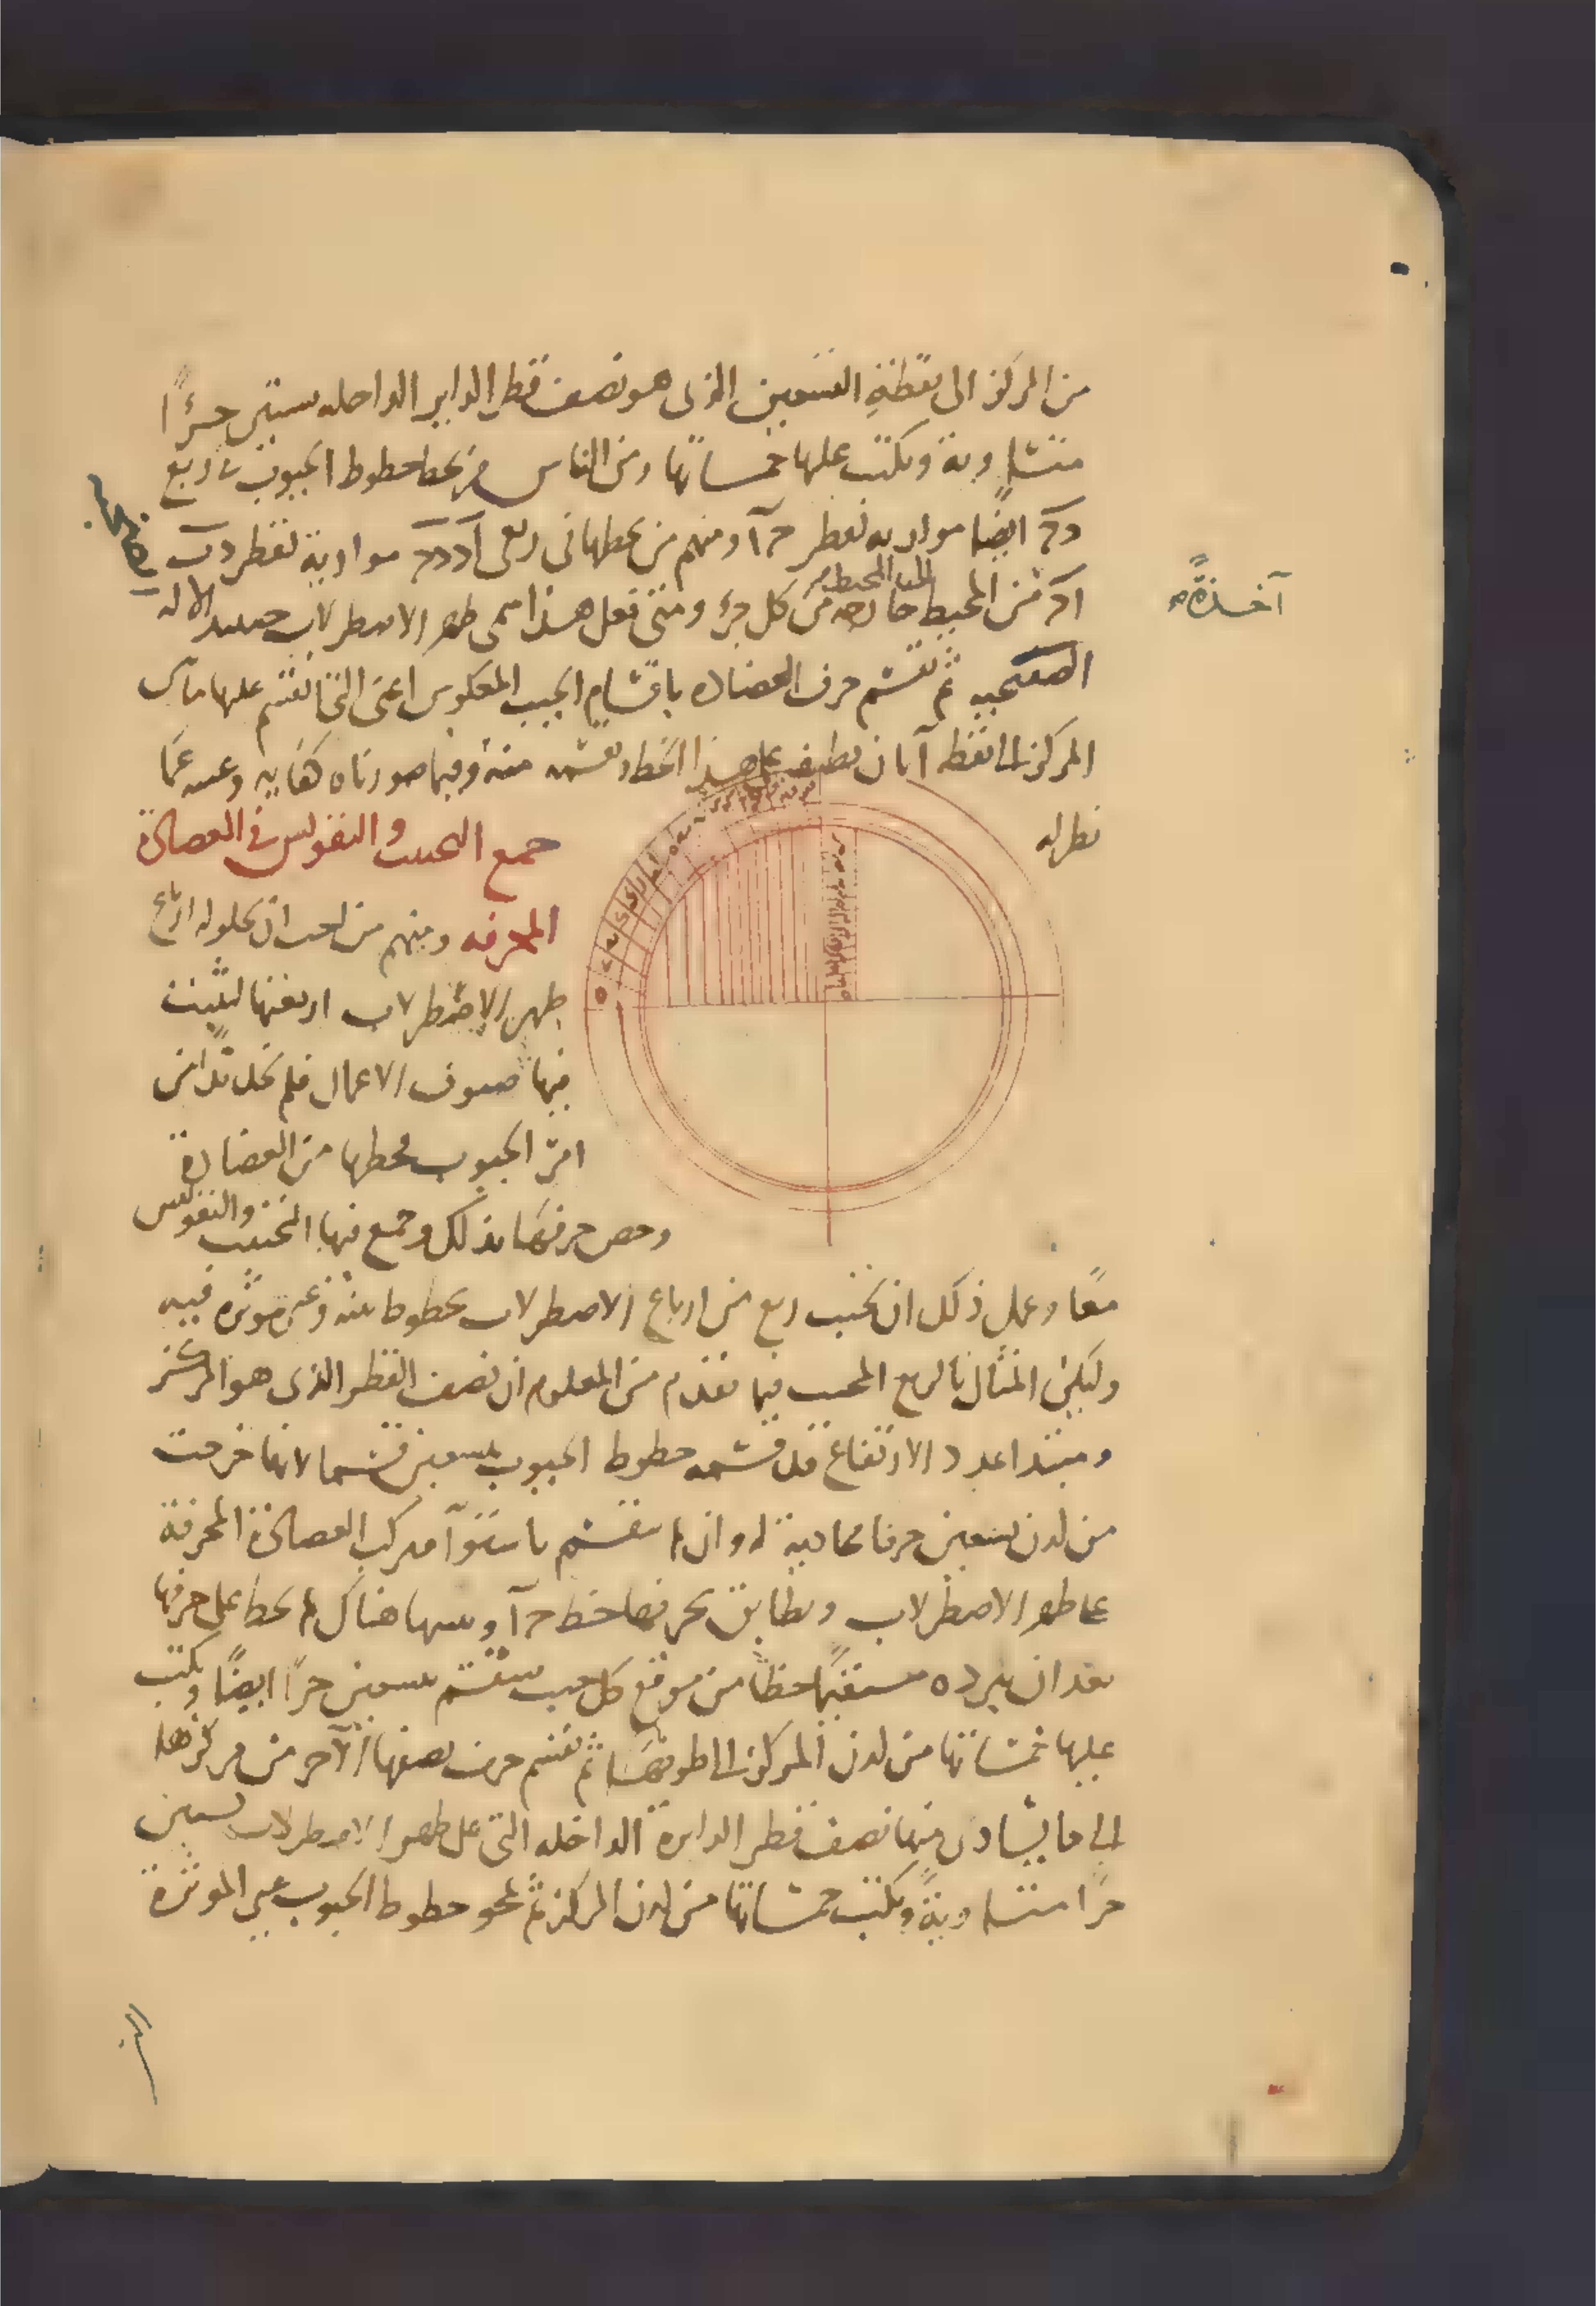 من المركز الى نقطة التسعين الذى هو نصف قطر الداير الداخله ستين جزءًا
متساوية ويكتب عليها خمساتها ومن الناس من يخط خطوط الجيوب فى ربع
دح ايضًا موازيه لقطر حآ ومنهم من يخطها فى ربعى اد دح موازية لقطر دب
اح من المحيط من كل جزء ومتى فعل هذا سمى ظهر الاصطرلاب حينيد الاله
آخذة
المجيبه ثم تقسم حرف العضاده باقسام الجيب المعكوس اعنى التى انقسم عليها ما بين
المركز الى نقطه آ بان يطبق على هذا الخط وتقسمه منه وفيما صورناه كفايه وغنيه عما
نظر له
جمع التجييب والتقويس فى العضادة
المحرفه ومنهم من احب ان يخلو له ارباع
ظهر الاصطرلاب اربعتها ليثبت
فيها صنوف الاعمال فلم يخل بدا من
امر الجيوب فخطها من العضادة
وخص حرفها بذلك وجمع فيها التجييب والتقويس
معًا وعمل ذلك ان يجيب ربع من ارباع الاصطرلاب بخطوط غير موثره فيه
وليكن المثال بالربع المجيب فيما تقدم من المعلوم ان نصف القطر الذى هو المركز
ومبتدا عدد الارتفاع قد قسمه خطوط الجيوب بتسعين قسما لانها خرجت
من لدن تسعين جزءا محاذية له وان لم ينقسم باستوآ فتركب العضادة المحرفة
على ظهر الاصطرلاب ويطابق بحرفها خط حآ وهناك لم يخط على حرفها
بعد ان مستقيمًا خطًا من موقع كل جيب تنقسم بتسعين جزءًا ايضًا ويكتب
عليها خمساتها من لدن المركز الى طرفها ثم تقسم حرف نصفها الآخر من مركزها
الى ما يساوى منها نصف قطر الدايرة الداخله التى على ظهر الاصطرلاب بستين
جزءًا متساوية ويكتب خمساتها من لدن المركز ثم تمحو خطوط الجيوب غير الموثرة